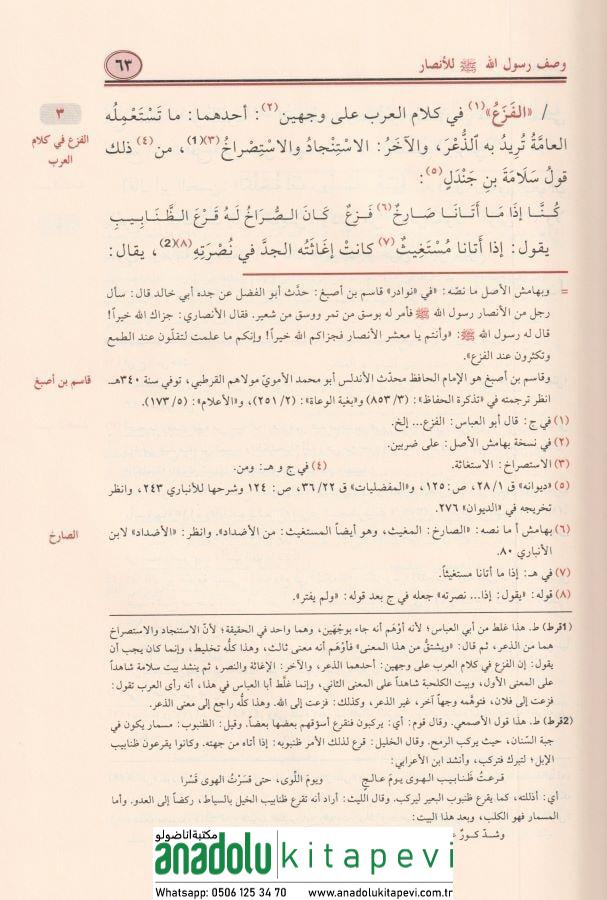 وصف رسول الله ﷺ للأنصار
٦٣
/ «الفَزَعُ»(١) في كلام العرب على وجهين(٢): أحدهما: ما تَسْتَعْمِلُه
٣
الفزع في كلام
العرب
العامَّةُ تُرِيدُ به الذُّعْرَ، والآخَرُ: الاسْتِنْجادُ والاسْتِصْراخُ(٣)(1)، من(٤) ذلك
قولُ سَلَامَةَ بنِ جَنْدَلٍ(٥):
كُنَّا إذَا مَا أَتَانَا صَارِخٌ(٦) فَزِعٌ كَانَ الصُّرَاخُ لَهُ قَرْعَ الظَّنَابِيبِ
يقول: إذا أَتانا مُسْتَغِيثٌ(٧) كانتْ إغاثَتُه الجدَّ في نُصْرَتِهِ(٨)(2)، يقال:
= وبهامش الأصل ما نصّه: «في «نوادر» قاسم بن أصبغ: حدّث أبو الفضل عن جده أبي خالد قال: سأل
رجل من الأنصار رسول الله ﷺ فأمر له بوسق من تمر ووسق من شعير. فقال الأنصاري: جزاك الله خيراً!
قال له رسول الله ﷺ: «وأنتم يا معشر الأنصار فجزاكم الله خيراً! وإنكم ما علمت لتقلّون عند الطمع
وتكثرون عند الفزع».
قاسم بن أصبغ
وقاسم بن أصبغ هو الإمام الحافظ محدّث الأندلس أبو محمد الأمويّ مولاهم القرطبي، توفي سنة ٣٤٠هـ.
انظر ترجمته في «تذكرة الحفاظ»: (٨٥٣/٣) و«بغية الوعاة»: (٢٥١/٢)، و«الأعلام»: (١٧٣/٥).
(١) في ج: قال أبو العباس: الفزع... إلخ.
(٢) في نسخة بهامش الأصل: على ضربين.
(٣) الاستصراخ: الاستغاثة. (٤) في ج و هـ: ومن.
(٥) «ديوانه» ق ٢٨/١، ص: ١٢٥، و«المفضليات» ق ٣٦/٢٢، ص: ١٢٤ وشرحها للأنباري ٢٤٣، وانظر
تخريجه في «الديوان» ٢٧٦.
الصارخ
(٦) بهامش أ ما نصه: «الصارخ: المغيث، وهو أيضاً المستغيث: من الأضداد». وانظر: «الأضداد» لابن
الأنباري ٨٠.
(٧) في هـ: إذا ما أتانا مستغيثاً.
(٨) قوله: «يقول: إذا... نصرته» جعله في ج بعد قوله: «ولم يفتر».
(1قرط) ط. هذا غلط من أبي العباس؛ لأنه أوْهَم أنه جاء بوجْهَين، وهما واحد في الحقيقة؛ لأنّ الاستنجاد والاستصراخ
هما من الذعر، ثم قال: «ويشتقُّ من هذا المعنى» فأوْهَم أنه معنى ثالث، وهذا كلُّه تخليط، وإنما كان يجب أن
يقول: إن الفزع في كلام العرب على وجهين: أحدهما الذعر، والآخر: الإغاثة والنصر، ثم ينشد بيت سلامة شاهداً
على المعنى الأول، وبيت الكلحبة شاهداً على المعنى الثاني، وإنما غلَّط أبا العباس في هذا، أنه رأى العرب تقول:
فزعت إلى فلان، فتوهَّمه وجهاً آخر، غير الذعر، وكذلك: فزعت إلى الله. وهذا كله راجع إلى معنى الذعر.
(2قرط) ط. هذا قول الأصمعي. وقال قوم: أي: يركبون فنقرع أسؤقهم بعضها بعضاً. وقيل: الظنبوب: مسمار يكون في
جبة السّنان، حيث يركب الرمح. وقال الخليل: قرع لذلك الأمر ظنبوبه: إذا أتاه من جهته. وكانوا يقرعون ظنابيب
الإبل؛ لتبرك فتركب، وأنشد ابن الأعرابي:
قـرعـتُ ظـنـابـيـبَ الـهـوى يـومَ عـالـجٍ ويـومَ اللِّوى، حتى قسَرْتُ الهوى قَسْرا
أي: أذللته، كما يقرع ظنبوب البعير ليركب. وقال الليث: أراد أنه تقرع ظنابيب الخيل بالسياط، ركضاً إلى العدو. وأما
المسمار فهو الكلب، وبعد هذا البيت:
وشـدّ كـورٌ
مكتبة اناضولو
anadolu kitapevi
Whatsapp: 0506 125 34 70 www.anadolukitapevi.com.tr